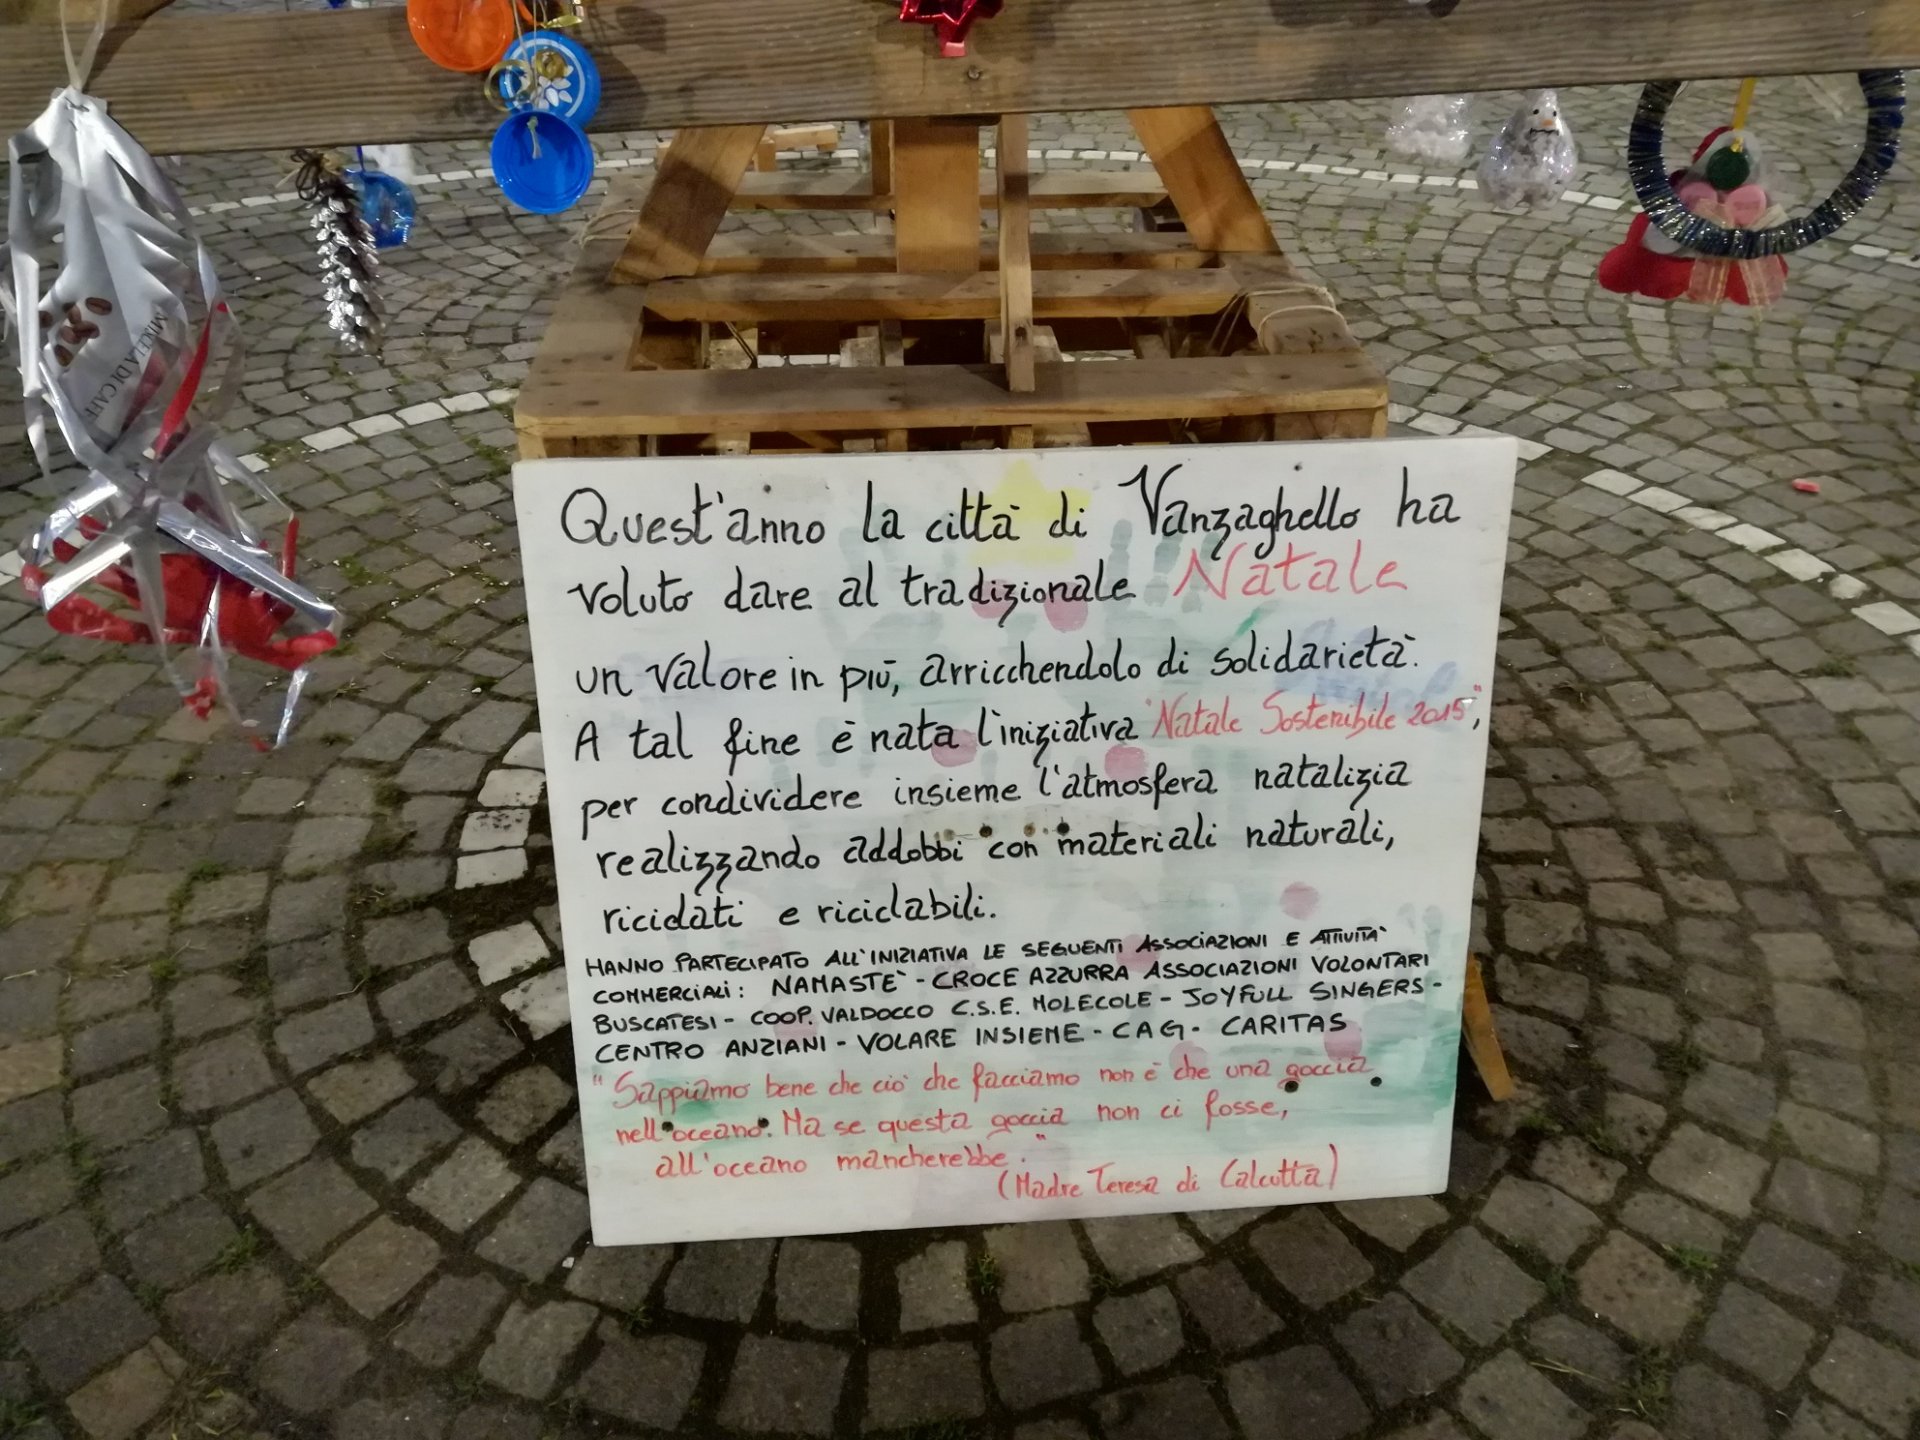 MISCELA DI CAFF
Quest'anno la città di Vanzaghello ha
voluto dare al tradizionale Natale
un valore in più, arricchendolo di solidarietà.
A tal fine è nata l'iniziativa "Natale Sostenibile 2015",
per condividere insieme l'atmosfera natalizia
realizzando addobbi con materiali naturali,
riciclati e riciclabili.
HANNO PARTECIPATO ALL'INIZIATIVA LE SEGUENTI ASSOCIAZIONI E ATTIVITÀ
COMMERCIALI: NAMASTÈ - CROCE AZZURRA ASSOCIAZIONI VOLONTARI
BUSCATESI - COOP. VALDOCCO C.S.E. MOLECOLE - JOYFULL SINGERS -
CENTRO ANZIANI - VOLARE INSIEME - CAG - CARITAS
"Sappiamo bene che ciò che facciamo non è che una goccia
nell'oceano. Ma se questa goccia non ci fosse,
all'oceano mancherebbe."
(Madre Teresa di Calcutta)